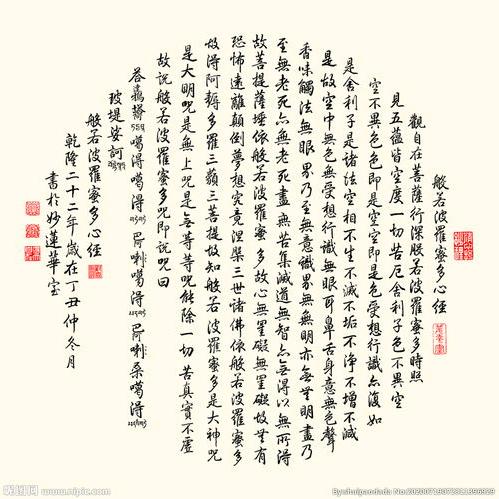 般若波羅蜜多心經
觀自在菩薩行深般若波羅蜜多時照
見五蘊皆空度一切苦厄舍利子色不異空
空不異色色即是空空即是色受想行識亦復如
是舍利子是諸法空相不生不滅不垢不淨不增不減
是故空中無色無受想行識無眼耳鼻舌身意無色聲
香味觸法無眼界乃至無意識界無無明亦無無明盡乃
至無老死亦無老死盡無苦集滅道無智亦無得以無所得
故菩提薩埵依般若波羅蜜多故心無罣礙無罣礙故無有
恐怖遠離顛倒夢想究竟涅槃三世諸佛依般若波羅蜜多
故得阿耨多羅三藐三菩提故知般若波羅蜜多是大神咒
是大明咒是無上咒是無等等咒能除一切苦真實不虛
故說般若波羅蜜多咒即說咒曰
噶得噶得 喇噶得 喇桑噶得
玻堤娑訶
般若波羅蜜多心經
乾隆二十二年歲在丁丑仲冬月
書於妙蓮華室
昵图网 www.nipic.com
By:shuipandada No:20200719075321396029